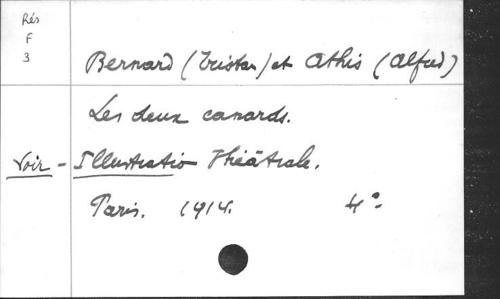 Rés
F
3
Bernard (Tristan) et Athis (Alfred)
Les deux canards.
Voir - Illustration Théâtrale.
Paris. 1914. 4°.